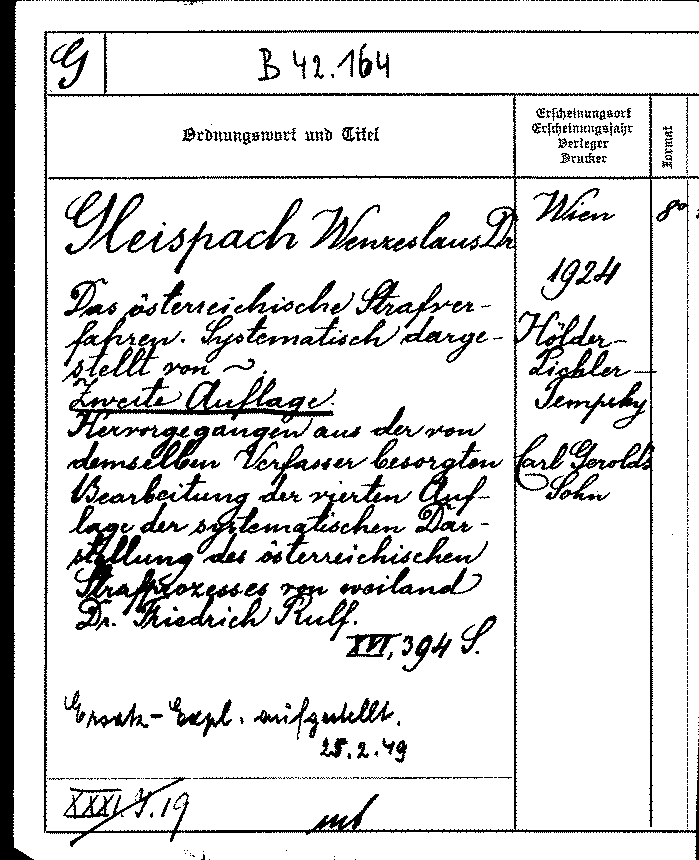 G
B 42.164
Ordnungswort und Titel
Erscheinungsort
Erscheinungsjahr
Verleger
Drucker
Format
Gleispach Wenzeslaus Dr
Das österreichische Strafver-
fahren. Systematisch darge-
stellt von ~.
Zweite Auflage.
Hervorgegangen aus der von
demselben Verfasser besorgten
Bearbeitung der vierten Auf-
lage der systematischen Dar-
stellung des österreichischen
Strafprozesses von weiland
Dr. Friedrich Rulf.
XVI, 394 S.
Wien
1924
Hölder-
Pichler-
Tempsky
Carl Gerold's
Sohn
8°
Ersatz-Expl. aufgestellt.
25.2.49
XXXI.J.19